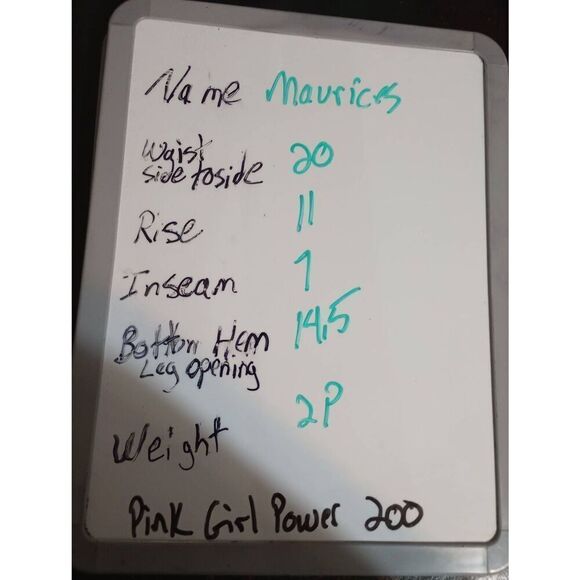 Name Maurices
Waist
side to side 20
Rise 11
Inseam 7
Bottom Hem 14,5
Leg opening
Weight 2P
Pink Girl Power 200